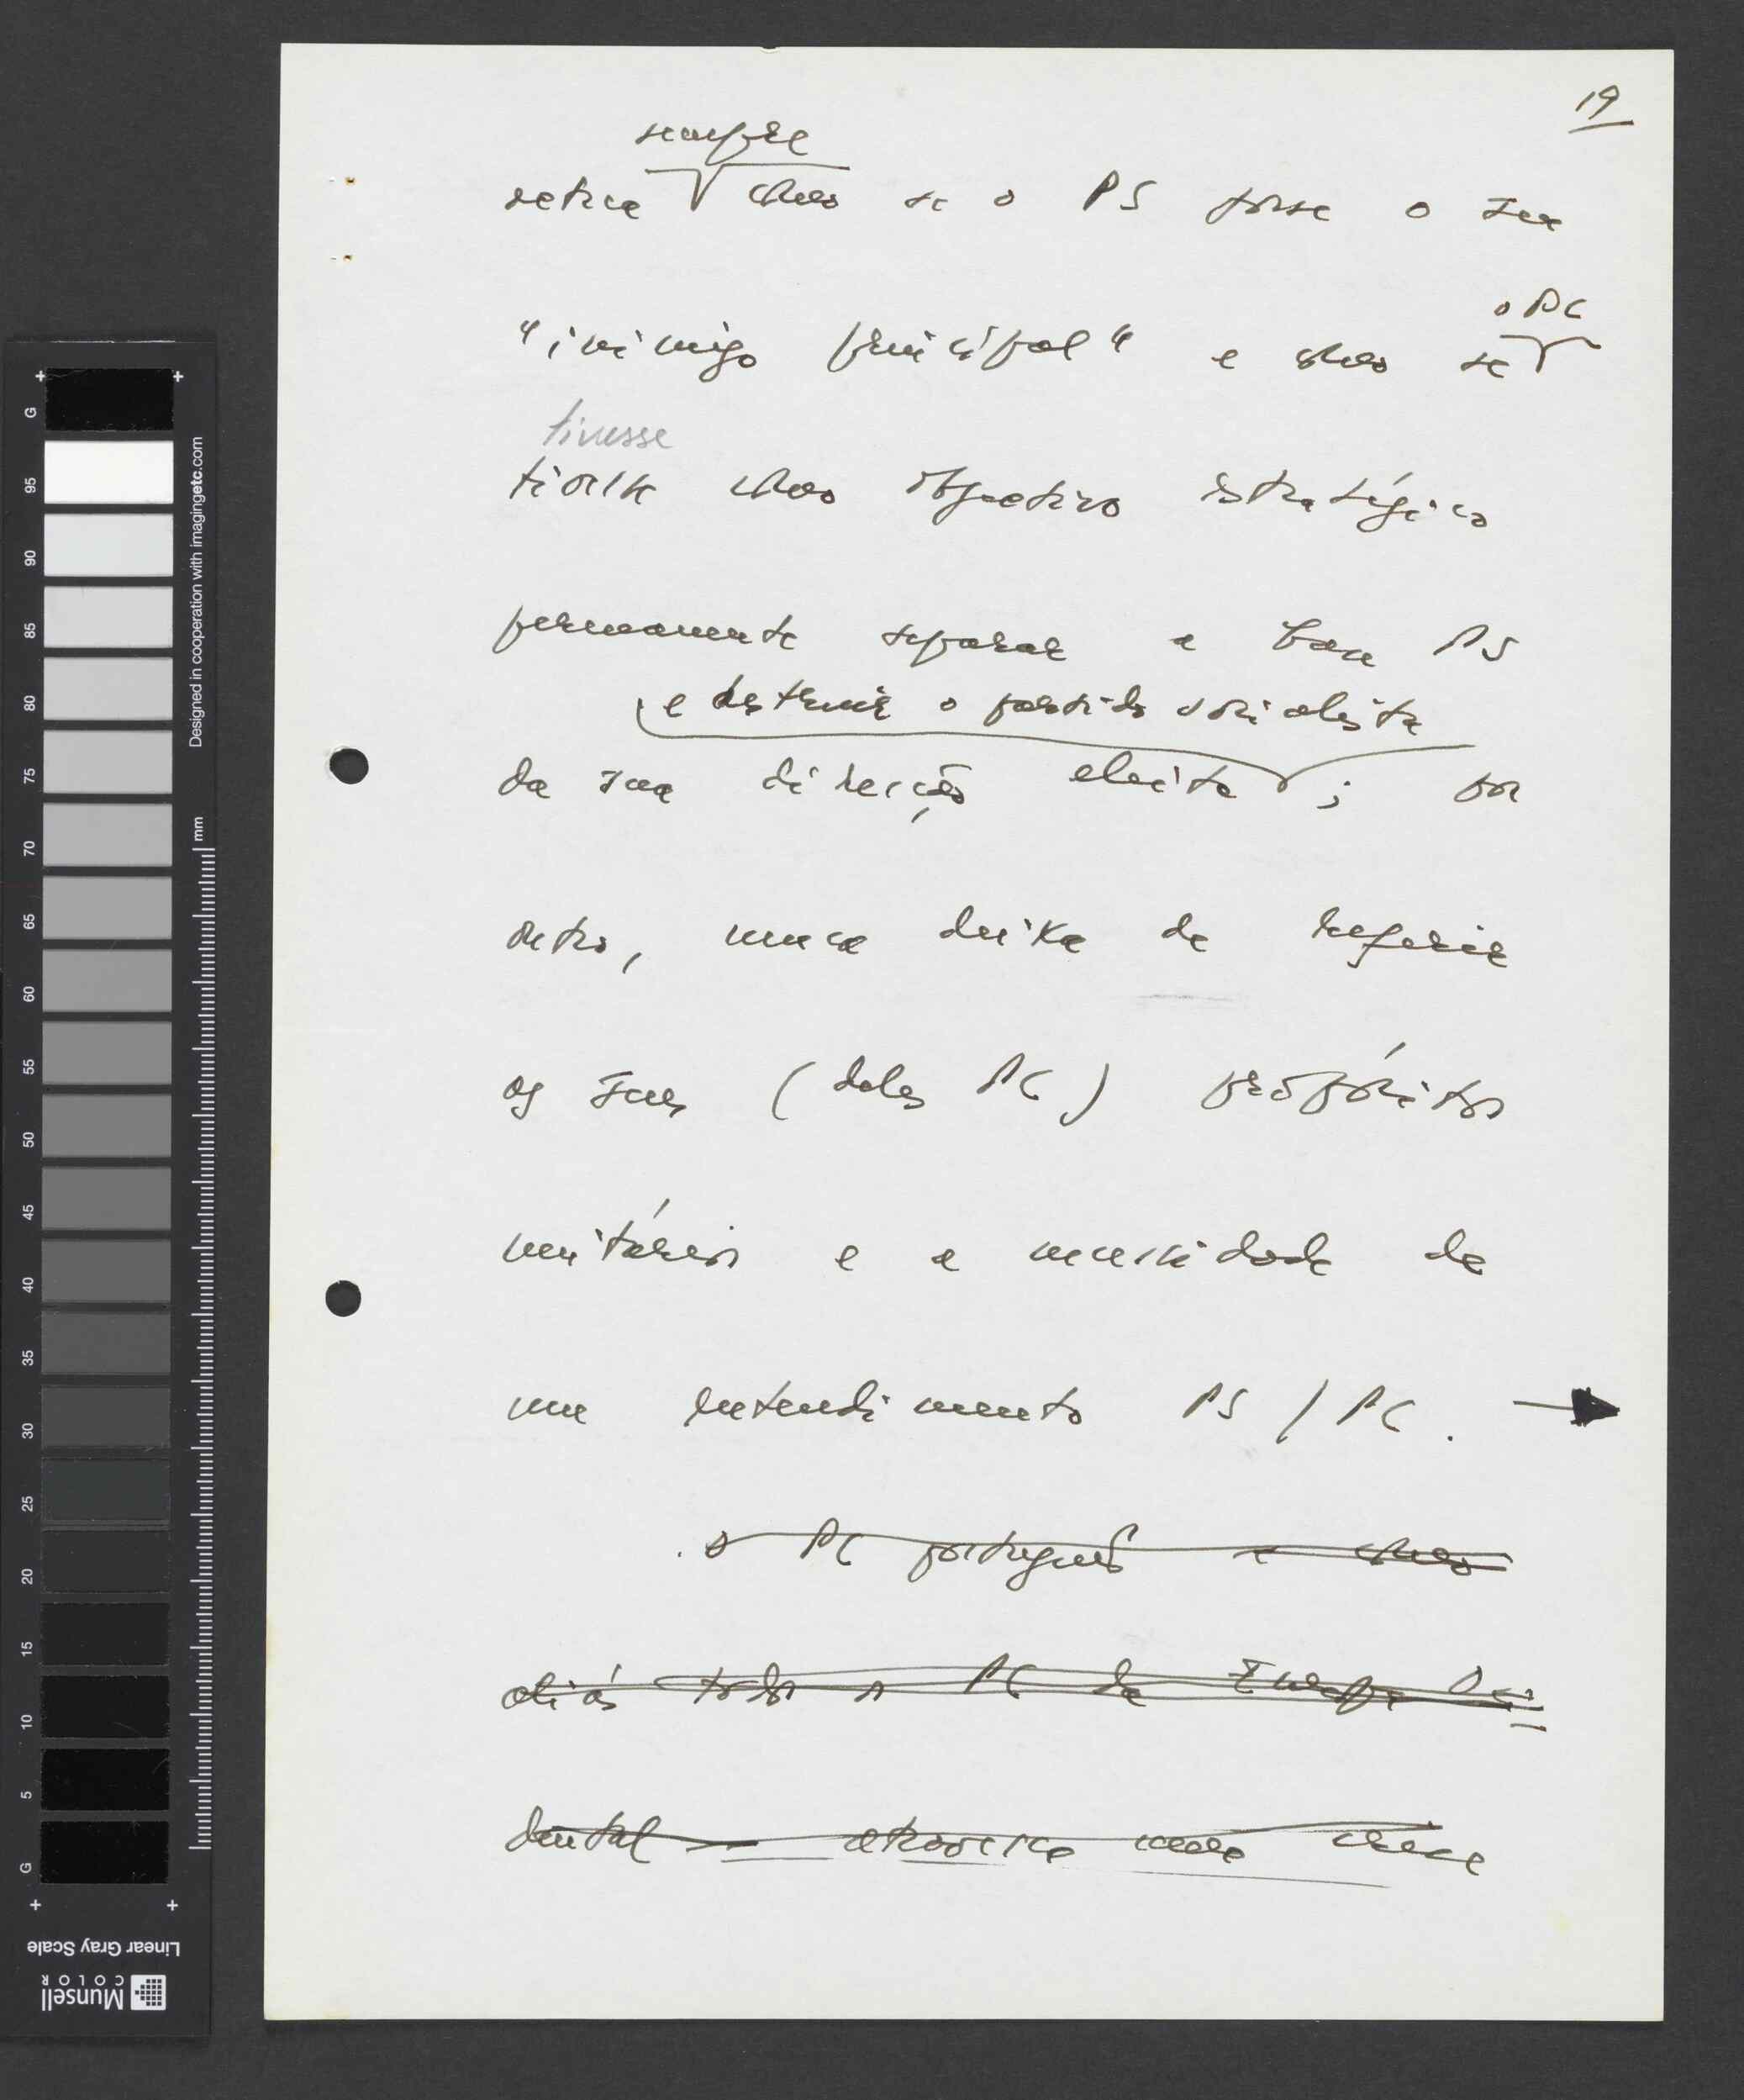 19
sempre
actua como se o PS fosse o seu
o PC
"inimigo principal" e como se
tivesse
tivesse como objectivo estratégico
permanente separar a base PS
e destruir o partido socialista
da sua direcção eleita; por
outro, nunca deixa de referir
os seus (deles PC) propósitos
unitários e a necessidade de
um entendimento PS / PC. →
o PC português e como
aliás todos os PC da Europa Oci
dental — atravessa uma crise
G
95
90
85
80
75
70
65
60
55
50
45
40
35
30
25
20
15
10
5
G
Designed in cooperation with imagingetc.com
mm
Linear Gray Scale
Munsell
COLOR